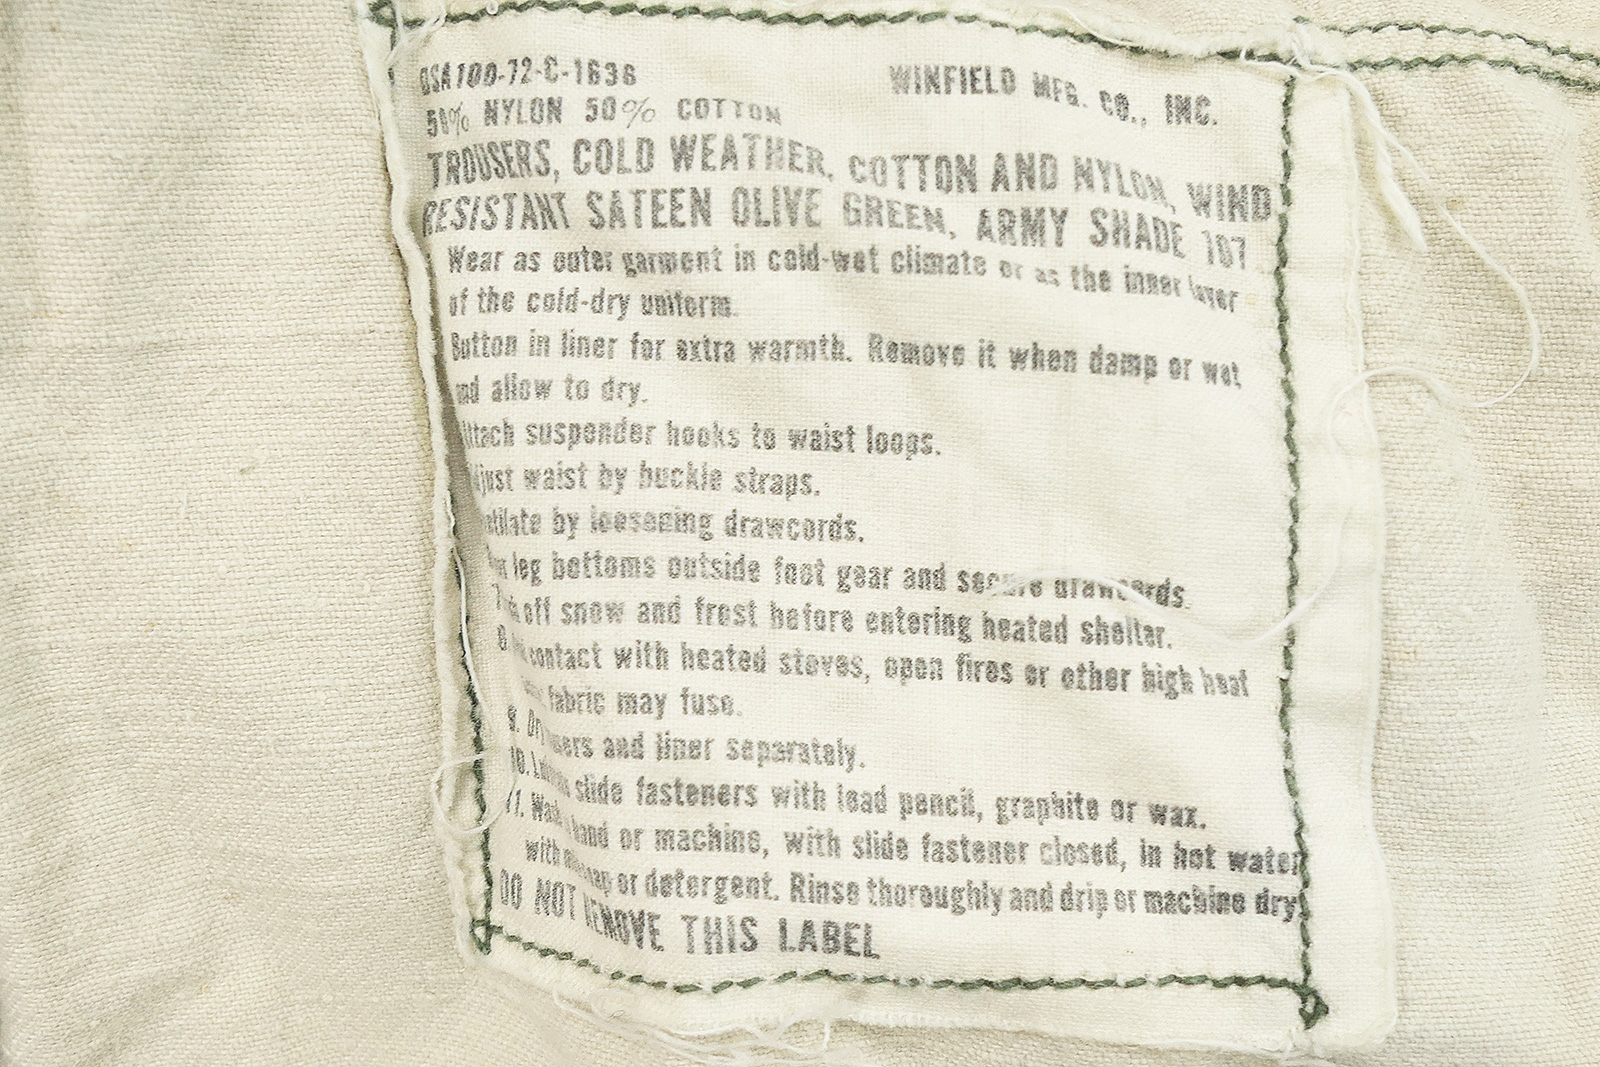 DSA100-72-C-1636 WINFIELD MFG. CO., INC.
50% NYLON 50% COTTON
TROUSERS, COLD WEATHER, COTTON AND NYLON, WIND
RESISTANT SATEEN OLIVE GREEN, ARMY SHADE 107
Wear as outer garment in cold-wet climate or as the inner layer
of the cold-dry uniform.
Button in liner for extra warmth. Remove it when damp or wet
and allow to dry.
Attach suspender hooks to waist loops.
Adjust waist by buckle straps.
by loosening drawcords.
leg bottoms outside foot gear and secure drawcords.
7. off snow and frost before entering heated shelter.
8. contact with heated stoves, open fires or other high heat
fabric may fuse.
9. and liner separately.
10. slide fasteners with lead pencil, graphite or wax.
11. Wash hand or machine, with slide fastener closed, in hot water
with or detergent. Rinse thoroughly and drip or machine dry.
DO NOT REMOVE THIS LABEL